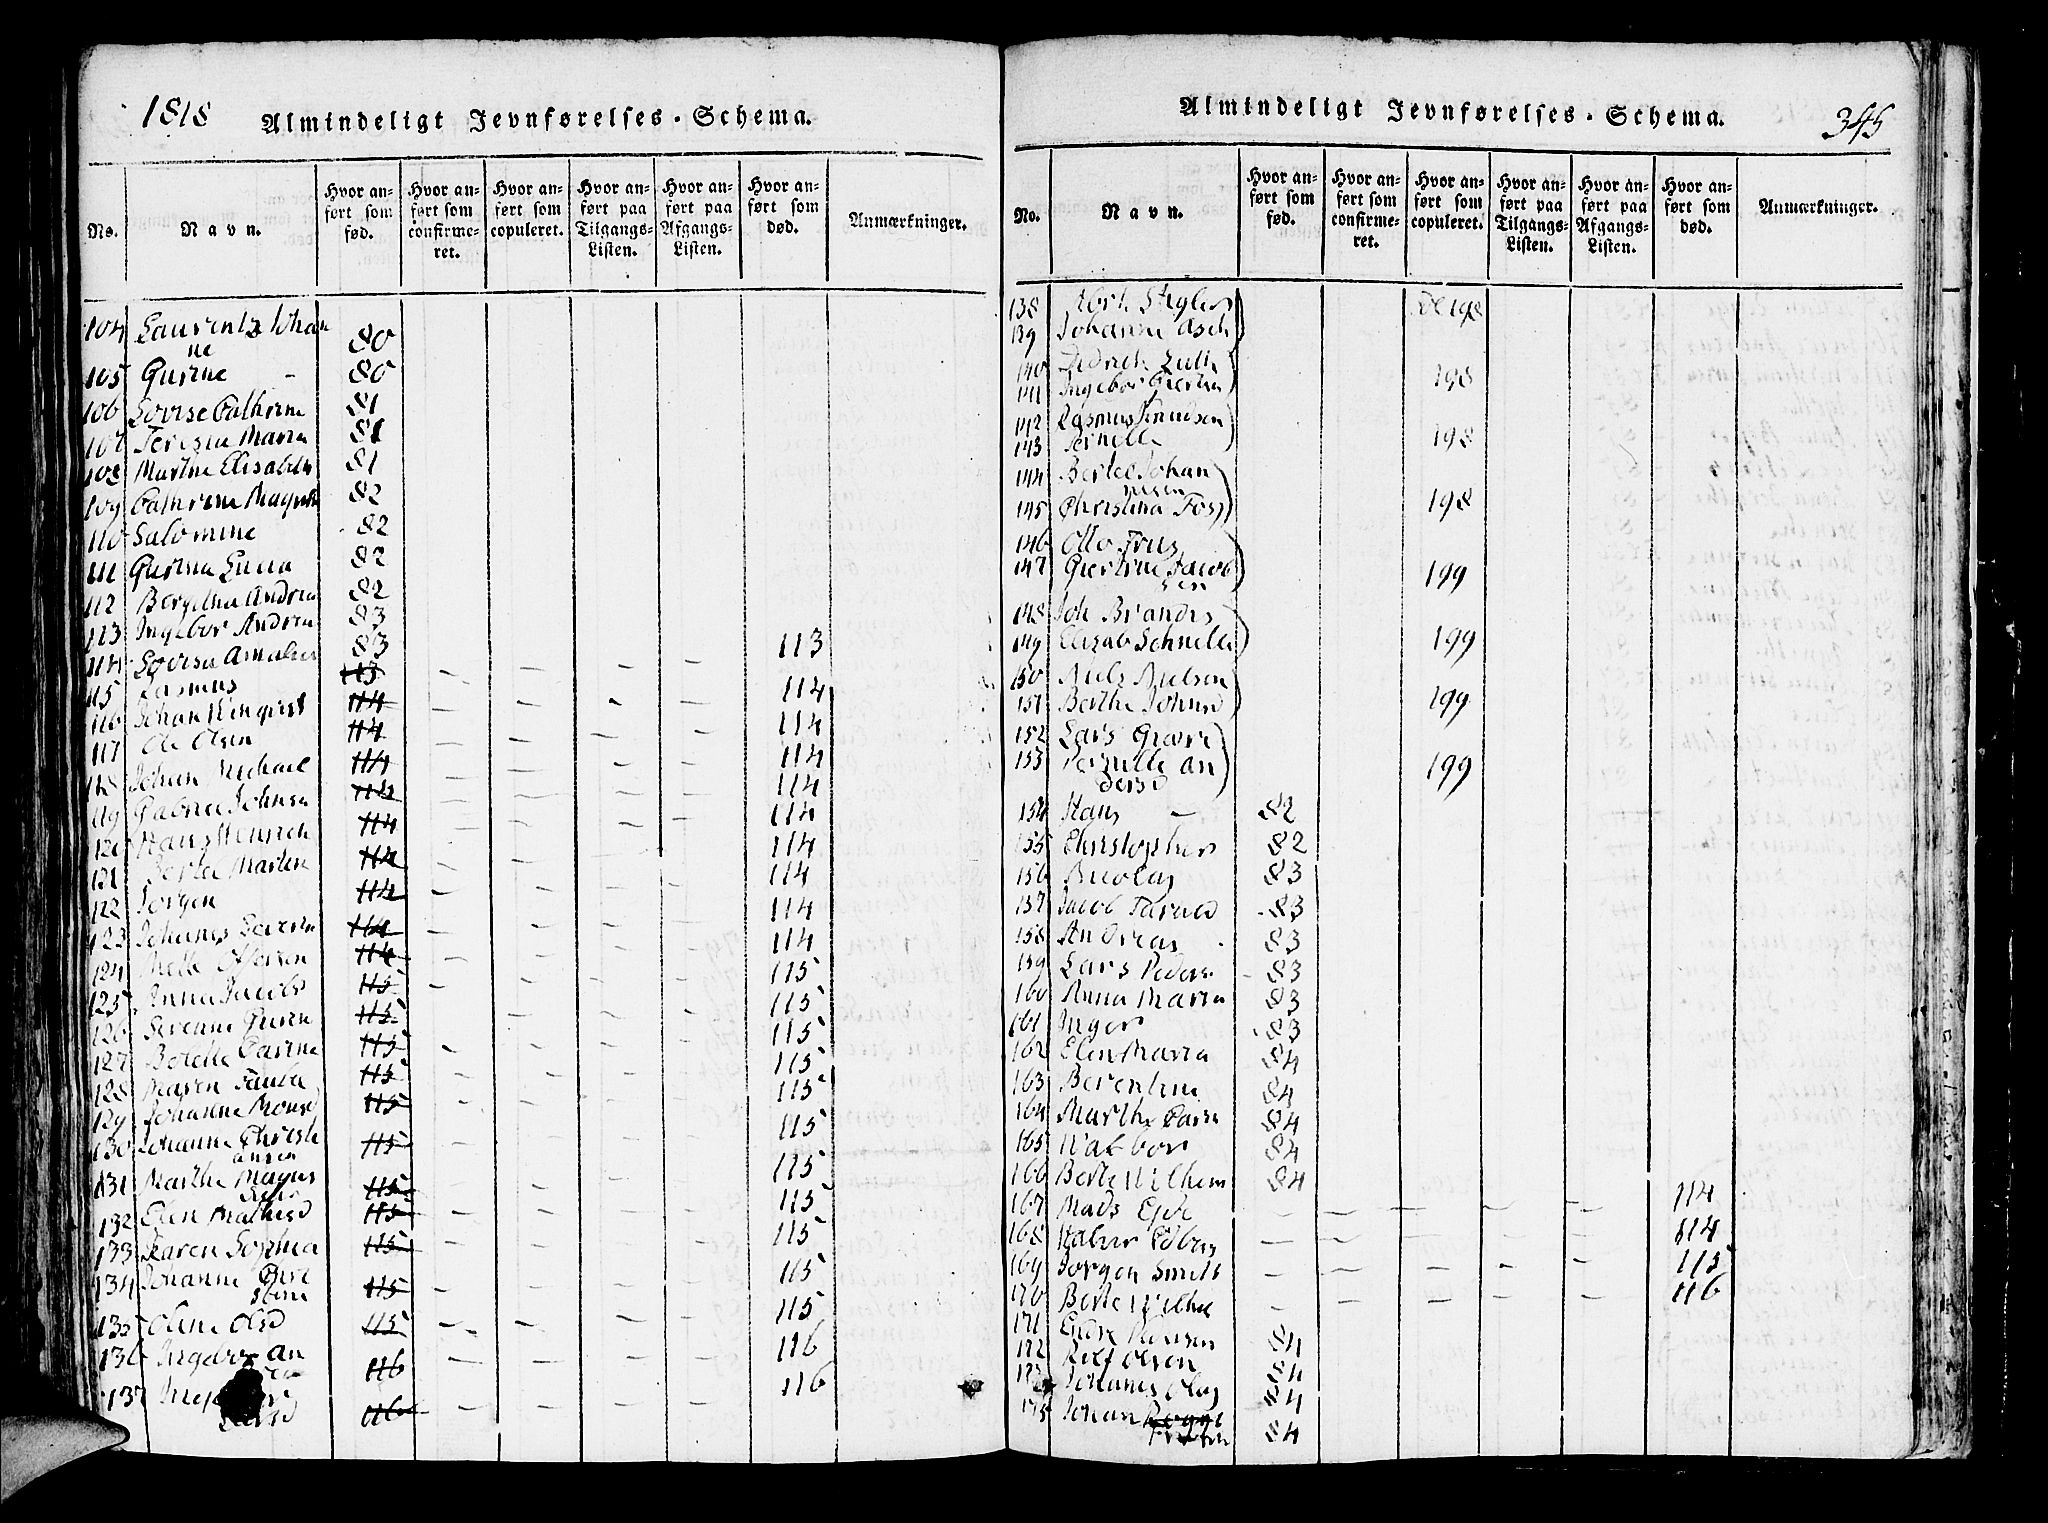 1818 Almindeligt Jevnførelses-Schema.
No. Navn. Hvor anført som fød. Hvor anført som confirmeret. Hvor anført som copuleret. Hvor anført paa Tilgangs-Listen. Hvor anført paa Afgangs-Listen. Hvor anført som død. Anmærkninger.
104 Laurentz Johan
ne 80
105 Gurine - 80
106 Lovise Cathrine 81
107 Teresia Maria 81
108 Martne Elisabeth 81
109 Cathrine Magreta 82
110 Salomine 82
111 Gurina Lucia 82
112 Bergitha Andrea 82
113 Ingebor Andrea 83
114 Lovisa Amalia 83
115 Rasmus 113 - - - - 113
116 Johan 114 - - - - 114
117 Ole Olsen 114 - - - - 114
118 Johan Michael 114 - - - - 114
119 Gabriel Johnsen 114 - - - - 114
120 Hans Henrich 114 - - - - 114
121 Berta Martine 114 - - - 114
122 Jorgen 114 - - - - 114
123 Johanes Severin 114 - - - - 114
124 Mette 114 - - 114
125 Anna Jacobs 115 - - - - 115
126 Serenne Guren 115 - - - 115
127 Botelle Carine 115 - - - - 115
128 Maren 115 - - - - 115
129 Johanne Monsd 115 - - - - 115
130 Johanne Christi
ansen 115 - - - - 115
131 Marthe Magns
115 - - - - 115
132 Elen Mathisd 115 - - - - 115
133 Karen Sophia 115 - - - - 115
134 Johanne
115 - - - - 115
135 Oline Olsd 115 - - - - 115
136 Ingebor an
116 - - - - 116
137
116 - - - - 116
Almindeligt Jevnførelses-Schema. 345
No. Navn. Hvor anført som fød. Hvor anført som confirmeret. Hvor anført som copuleret. Hvor anført paa Tilgangs-Listen. Hvor anført paa Afgangs-Listen. Hvor anført som død. Anmærkninger.
138 198
139 Johanne Asch
140
141 Ingebor 198
142 Rasmus Knudsen
143 Pernelle 198
144 Bertel Johan
nesen
145 Christina Foss 198
146 Otto Friis
147 Giertrine Jacob
sen 199
148 Joh Brandis
149 Elizab Schnelle 199
150 Niels Nielsen
151 Berthe Johnsd 199
152 Lars
153 Pernille an
dersd 199
154 Hans - 82
155 Christopher 82
156 Nicolay 83
157 Jacob 83
158 Andreas 83
159 Lars Peder 83
160 Anna Maria 83
161 Inger 83
162 Elen Maria 84
163 Berentine 84
164 Marthe Carin 84
165 Walbor 84
166 Berte Wilhem 84
167 Mads - - - - - 114
168 - - - - 114
169 Jorgen Smith - - - - - 115
170 Berte Wilhel - - - - - 116
171 Endre 84
172 Rolf Olsen 84
173 Johannes Olay 84
175 Johan
84